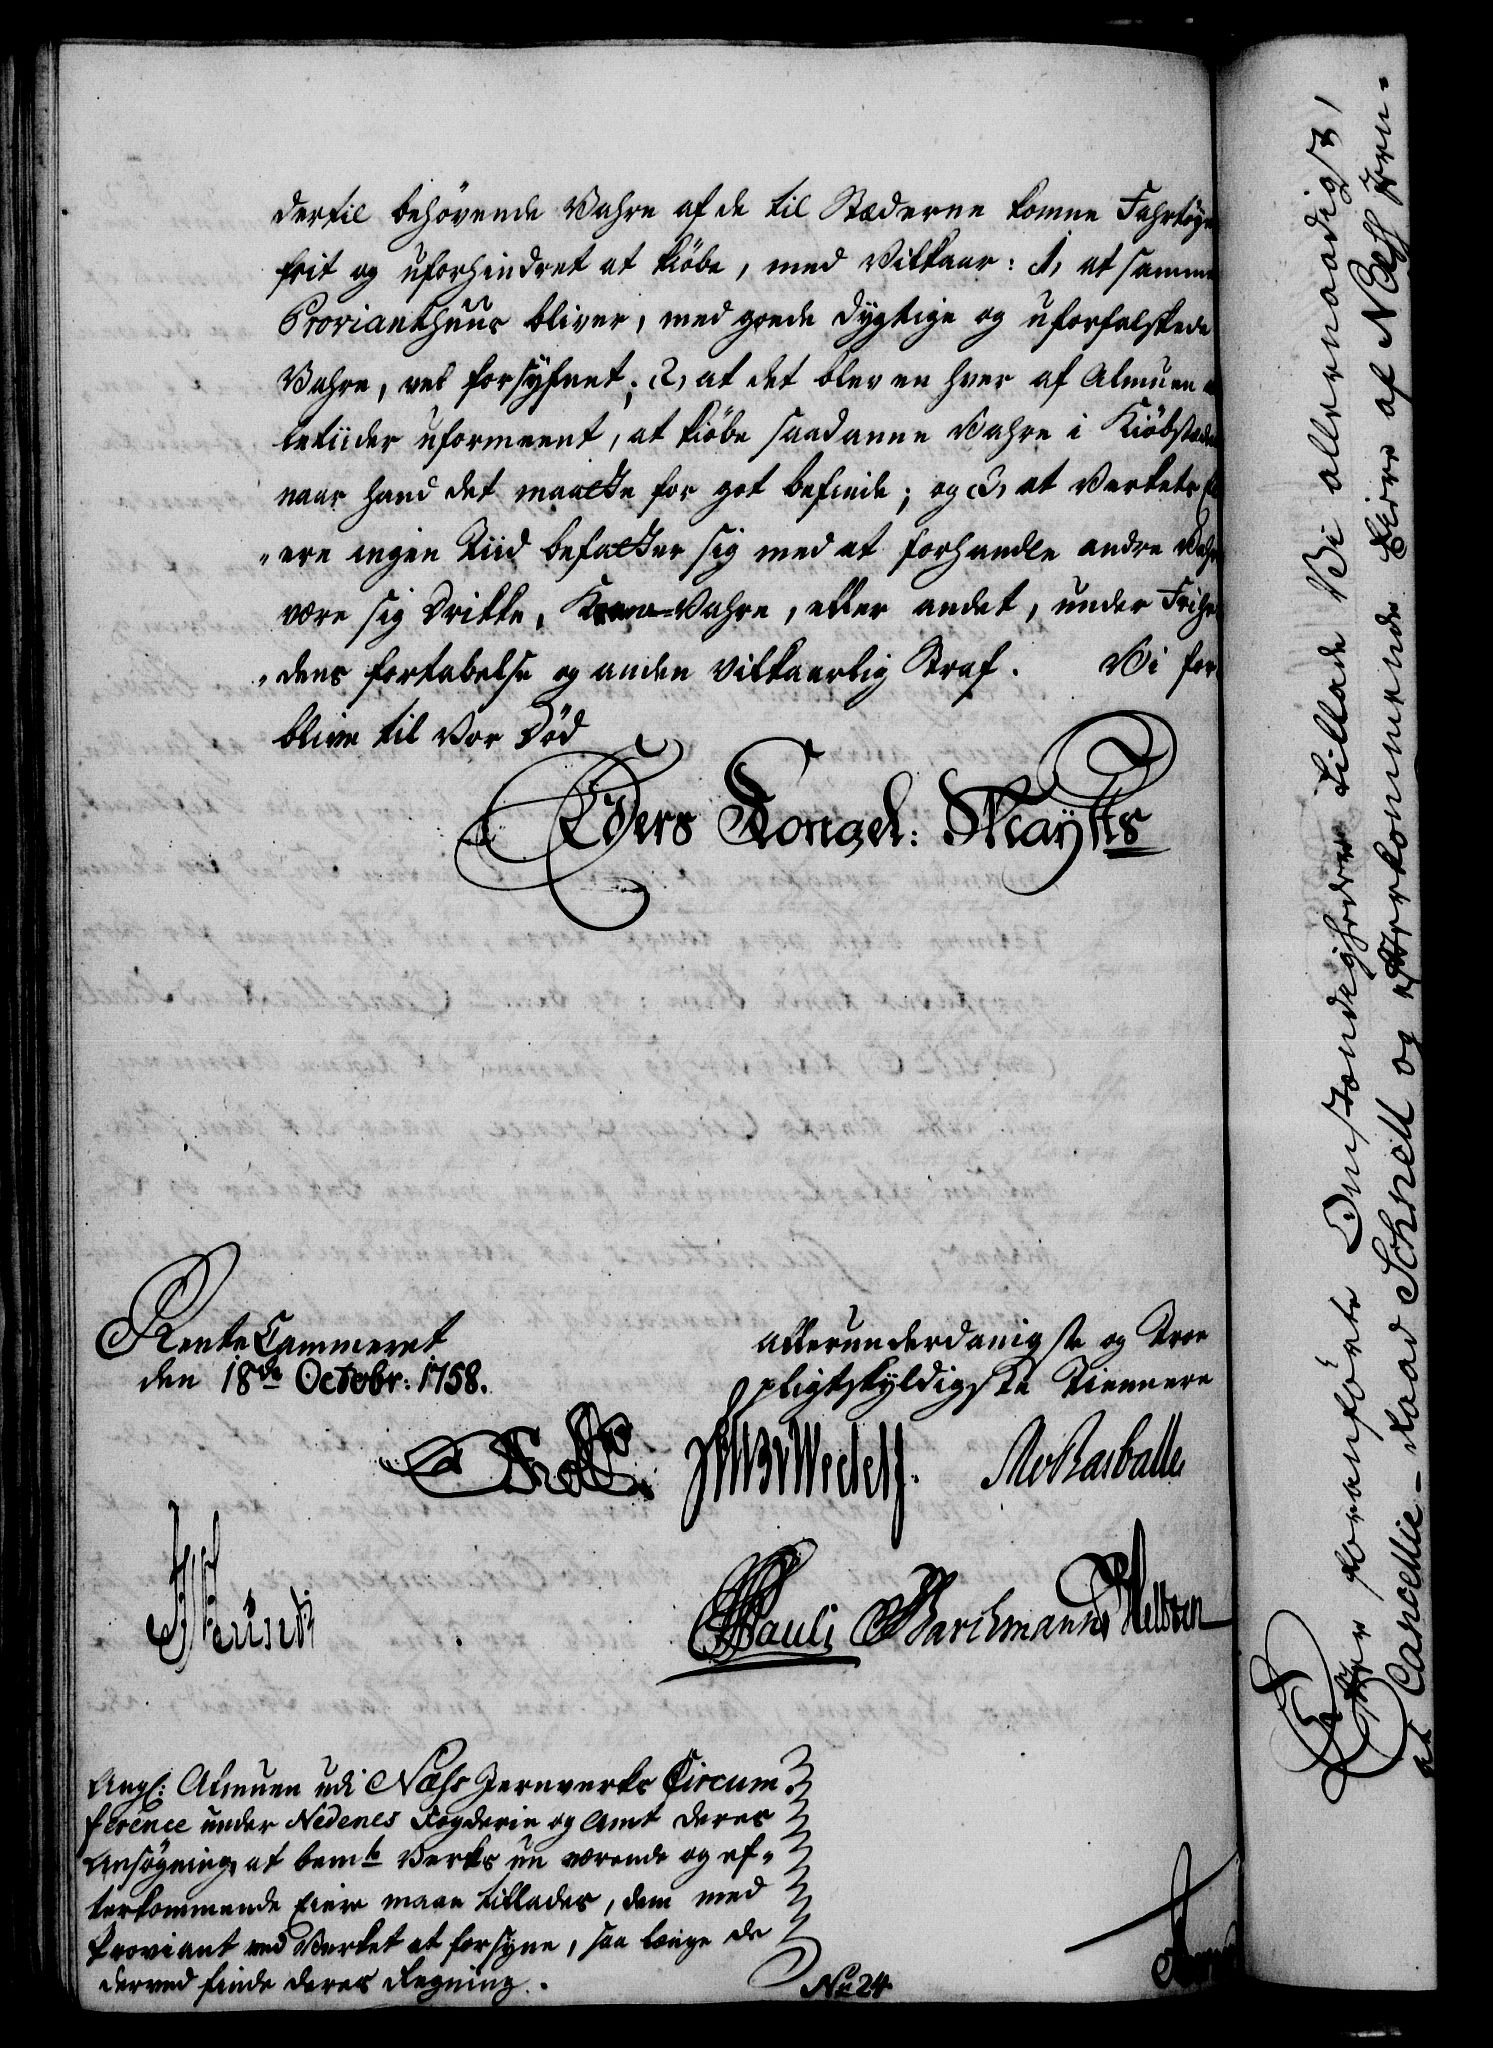 dertil behövende Vahre af de til Stæderne komne Fahrtöye
frit og uforhindret at kiöbe, med Vilkaar: 1, at samme
Provianthuus bliver, med goede dygtige og uforfalskede
Vahre, vel forsÿfnet; 2, at det blev en hver af Almuen
letiider uformeent, at kiöbe saadanne Vahre i Kiöbstæden
naar hand det maatte for got befinde; og 3, at Verkets
ere ingen Tiid befatter sig med at forhandle andre Vahr
være sig Drikke, Kram-Vahre, eller andet, under Frihe
dens fortabelse og anden vilkaarlig Straf. Vi for
blive til vor Död
Eders Kongel: Maÿtts
RenteCammeret
den 18de Octobr: 1758.
allerunderdanigste og troe
pligtskÿldigste Tiennere
Wedell.
Pauli Barchmann
Ang: Almuen udi Næhs Jernverks Circum
ference under Nedenes Fogderie og Amt deres
Ansögning, at bemte Verks nu værende og ef-
terkommende Eiere maae tillades, dem med
Proviant ved Verket at forsyne, saa længe de
derved finde deres Regning.
No 24
Efter foranförte Omstændigheder tillade Vi allernaadigst,
at Cancellie-Raad Schnell og efterkommende Eiere af Næss Jern-